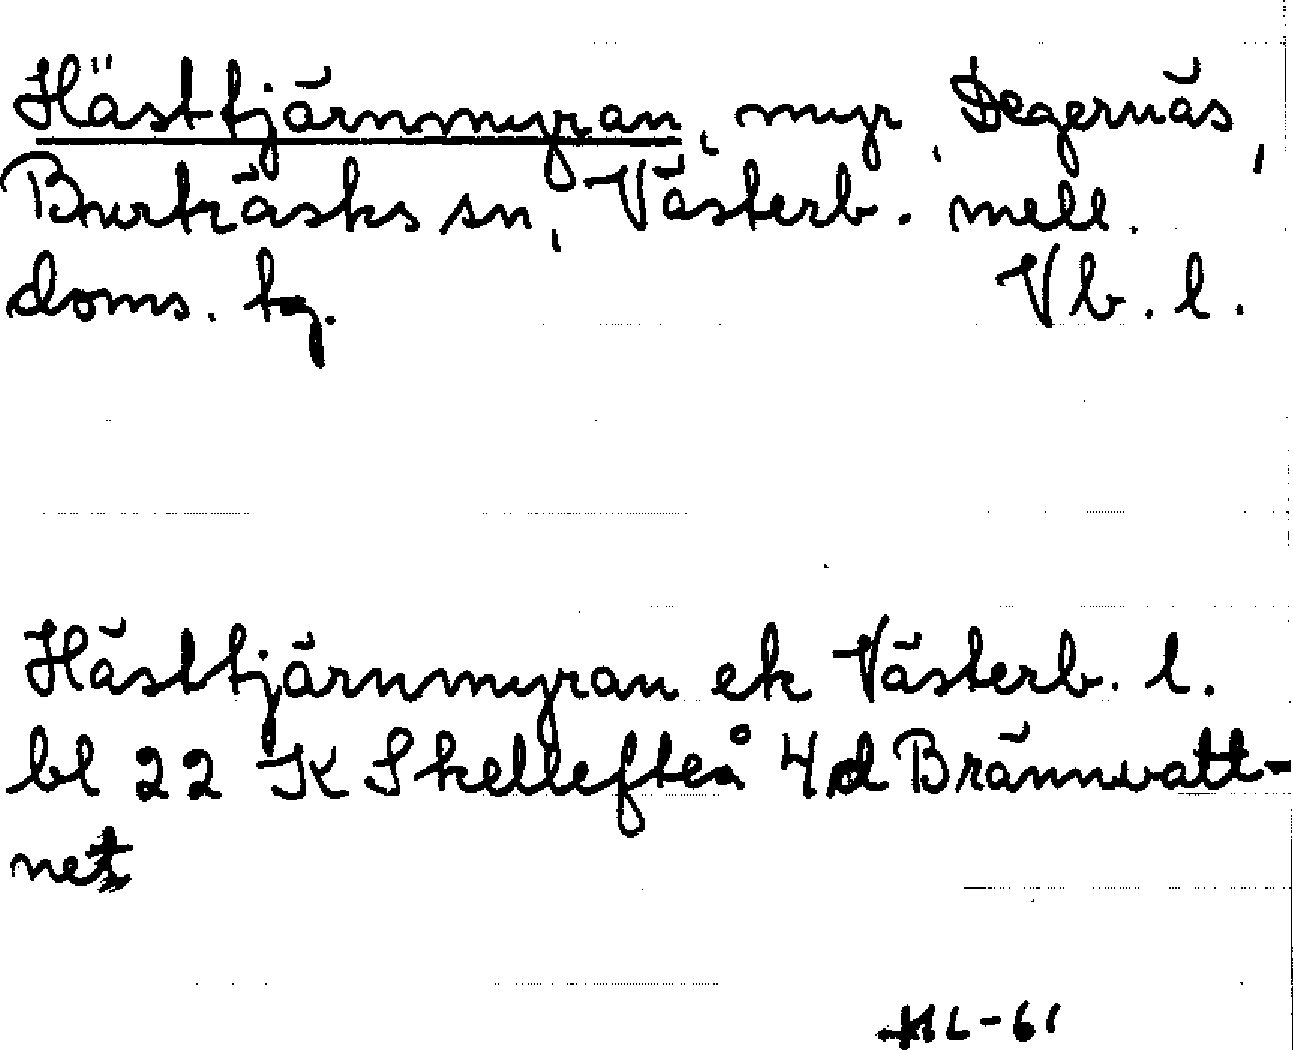 Hästtjärnmyran, myr, Degernäs,
Burträsks sn, Västerb. mell.
doms. tg. Vb. l.
Hästtjärnmyran ek Västerb. l.
bl 22 K Skellefteå 4d Brännvatt-
net
HL-61